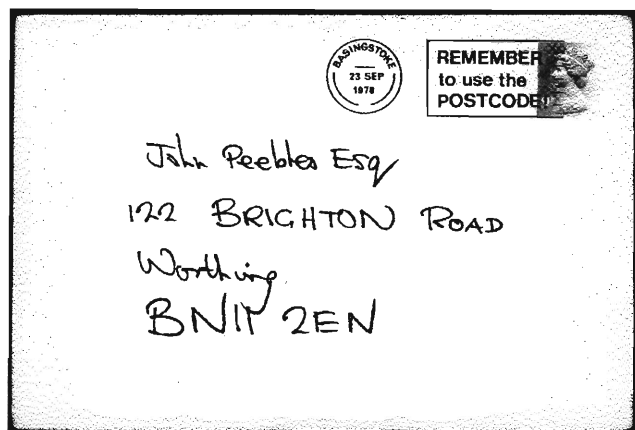 BASINGSTOKE
23 SEP
1978
REMEMBER
to use the
POSTCODE!
John Peebles Esq
122 BRIGHTON ROAD
Worthing
BN11 2EN